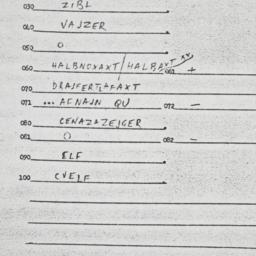 030 ZIBL
040 VAJZER
050 O
060 HALBNOXAXT/HALBAXT XV
061 +
070 DRAJFERTLAFAXT
071 ... AFNAJN QU 072 —
080 CENAZAZEJGER
081 O 082 —
090 ELF
100 CVELF